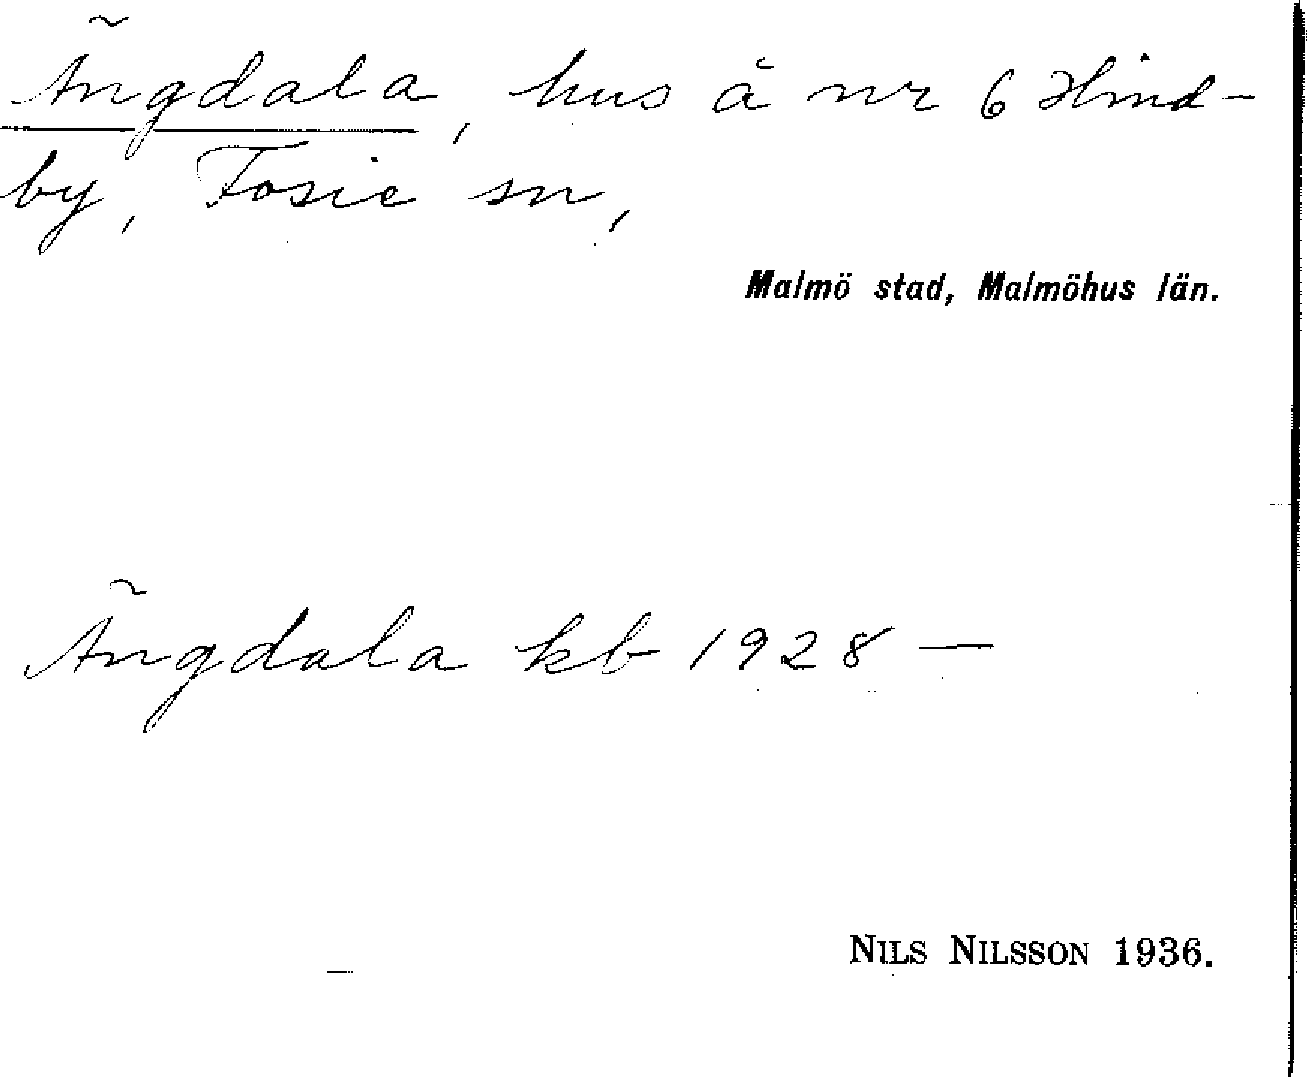 Ängdala, hus å nr 6 Hind-
by, Fosie sn,
Malmö stad, Malmöhus län.
Ängdala kb 1928 —
NILS NILSSON 1936.